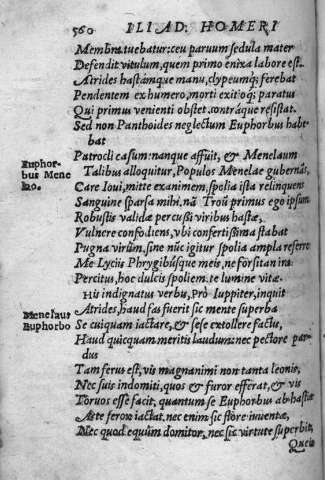 560 ILIAD. HOMERI
Membra tuebatur: ceu paruum sedula mater
Defendit vitulum, quem primo enixa labore est.
Atrides hastámque manu, clypeumq; ferebat
Pendentem ex humero, morti exitioq; paratus
Qui primus venienti obstet contráque resistat.
Sed non Panthoides neglectum Euphorbus habe-
bat
Patrocli casum: nanque affuit, & Menelaum
Euphor-
bus Mene
lao.
Talibus alloquitur, Populos Menelae gubernās,
Care Ioui, mitte exanimem, spolia ista relinquens
Sanguine sparsa mihi. nā Troū primus ego ipsum
Robustis validæ percussi viribus hastæ,
Vulnere confodiens, vbi confertissima stabat
Pugna virûm, sine nūc igitur spolia ampla referre
Me Lyciis Phrygibúsque meis, ne forsitan ira
Percitus, hoc dulcis spoliem te lumine vitæ.
His indignatus verbis, Prô Iuppiter, inquit
Menelaus
Euphorbo
Atrides, haud fas fuerit sic mente superba
Se cuiquam iactare, & sese extollere factis,
Haud quicquam meritis laudum: nec pectore par-
dus
Tam ferus est, vis magnanimi non tanta leonis,
Nec suis indomiti, quos & furor efferat, & vis
Toruos esse facit, quantum se Euphorbus ab hasta
Ante ferox iactat. nec enim sic flore iuuentæ,
Nec quod equûm domitor, nec sic virtute superbit,